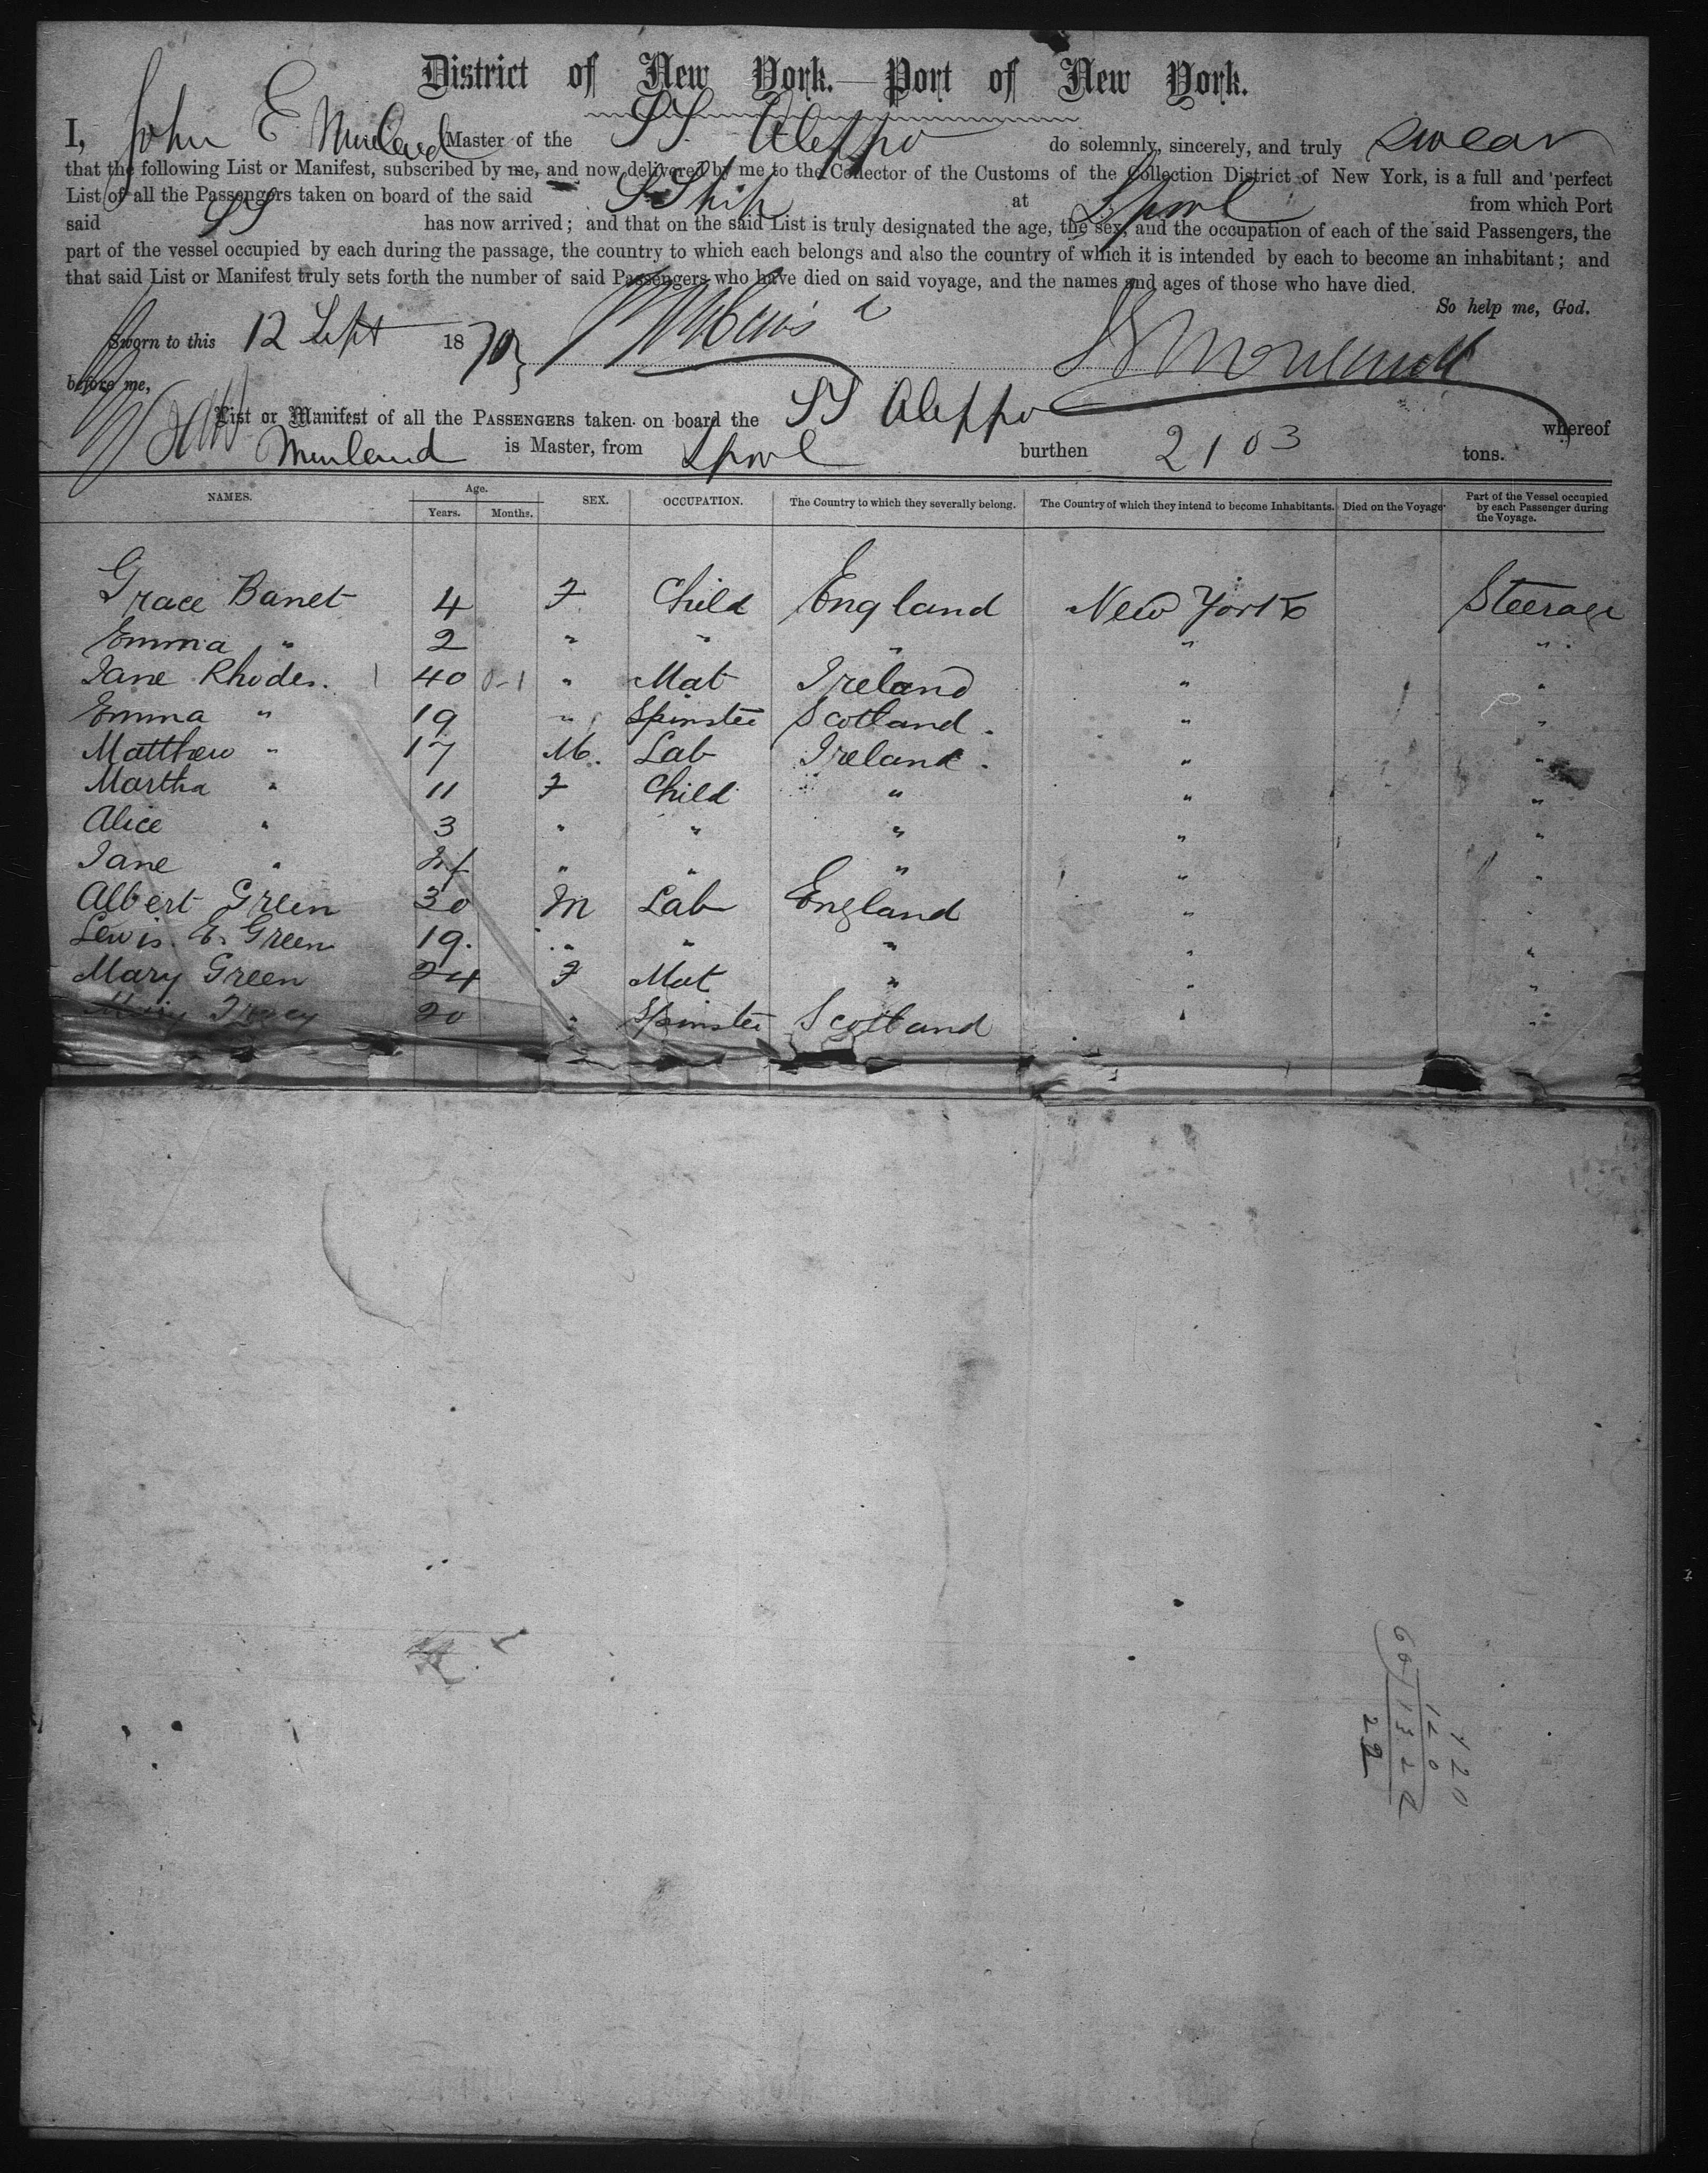 District of New York.—Port of New York.
I, John E Master of the SS Aleppo do solemnly, sincerely, and truly swear
that the following List or Manifest, subscribed by me, and now delivered by me to the Collector of the Customs of the Collection District of New York, is a full and perfect
List of all the Passengers taken on board of the said S Ship at Lpool from which Port
said SS has now arrived; and that on the said List is truly designated the age, the sex, and the occupation of each of the said Passengers, the
part of the vessel occupied by each during the passage, the country to which each belongs and also the country of which it is intended by each to become an inhabitant; and
that said List or Manifest truly sets forth the number of said Passengers who have died on said voyage, and the names and ages of those who have died.
So help me, God.
Sworn to this 12 Sept 1870
before me,
List or Manifest of all the PASSENGERS taken on board the SS Aleppo whereof
is Master, from Lpool burthen 2103 tons.
NAMES. Age. SEX. OCCUPATION. The Country to which they severally belong. The Country of which they intend to become Inhabitants. Died on the Voyage. Part of the Vessel occupied by each Passenger during the Voyage.
Years. Months.
Grace Banet 4 F Child England New York Steerage
Emma " 2 " " " " "
Jane Rhodes. 40 " Mat Ireland " "
Emma " 19 " Spinster Scotland. " "
Matthew " 17 M. Lab Ireland. " "
Martha " 11 F Child " " "
Alice " 3 " " " " "
Jane " Inf " " " " "
Albert Green 30 M Lab England " "
Lewis. E. Green 19. " " " " "
Mary Green 24 F Mat " " "
20 " Spinster Scotland " "
120
120
60) 132
22